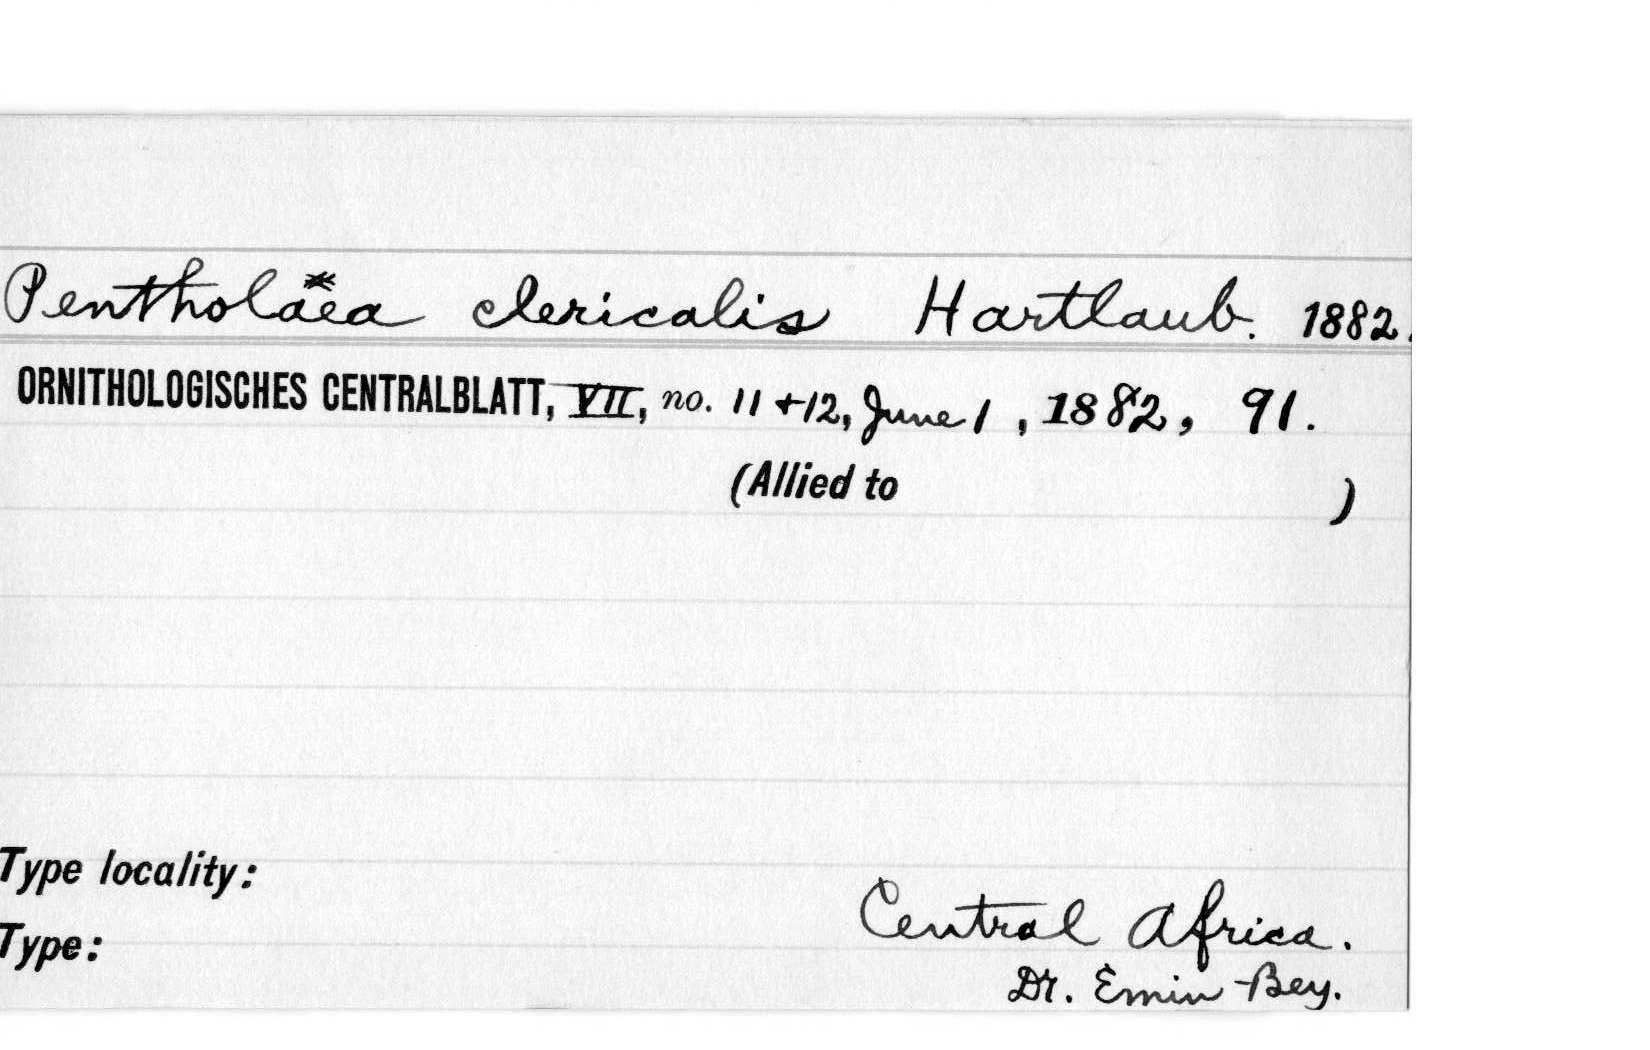 Pentholaea clericalis Hartlaub. 1882.
ORNITHOLOGISCHES CENTRALBLATT, VII, no. 11 + 12, June 1, 1882, 91.
(Allied to )
Type locality:
Central Africa.
Type:
Dr. Emin-Bey.